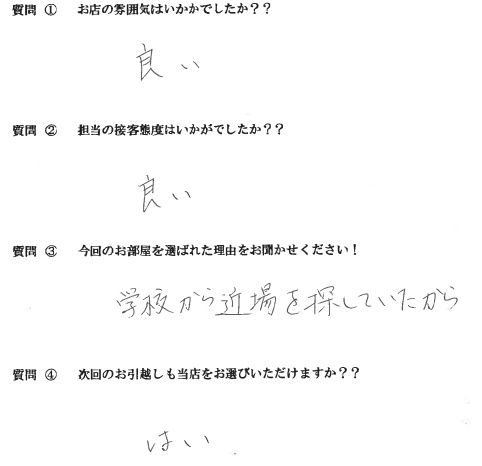 質問 ① お店の雰囲気はいかかでしたか??
良い
質問 ② 担当の接客態度はいかがでしたか??
良い
質問 ③ 今回のお部屋を選ばれた理由をお聞かせください!
学校から近場を探していたから
質問 ④ 次回のお引越しも当店をお選びいただけますか??
はい